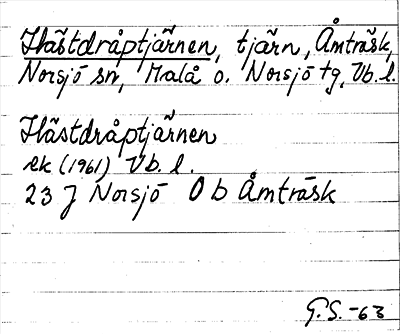 Hästdråptjärnen, tjärn, Åmträsk,
Norsjö sn, Malå o. Norsjö tg, Vb.l.
Hästdråptjärnen
ek (1961) Vb.l.
23 J Norsjö O b Åmträsk
G.S. -63